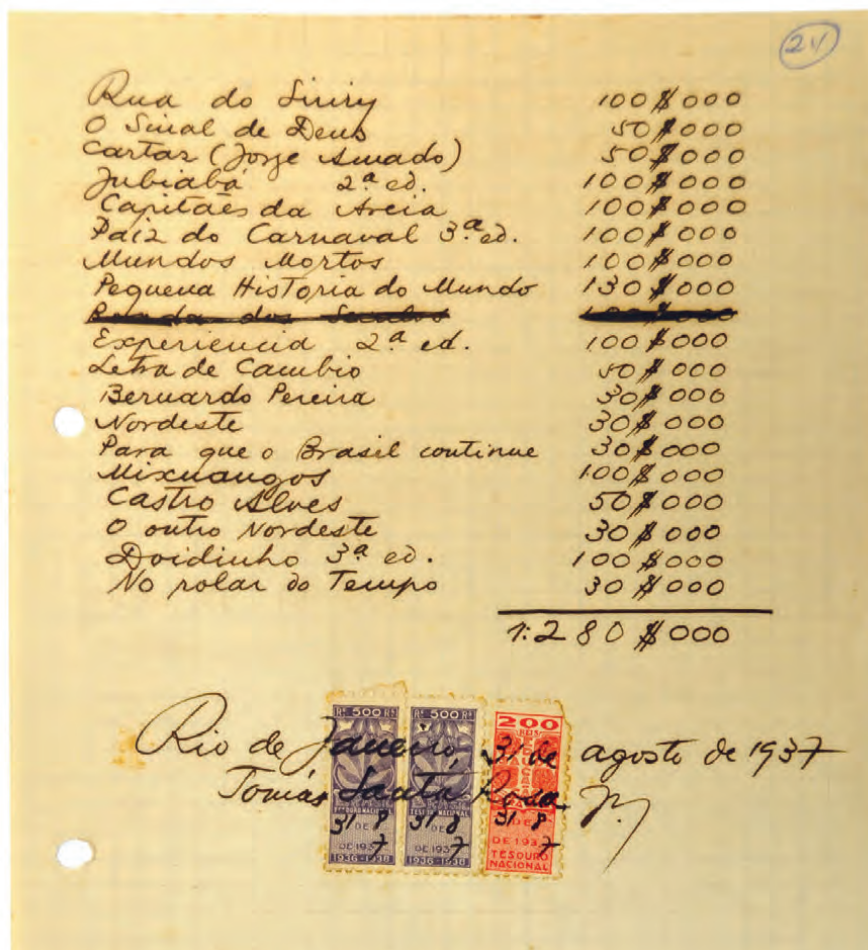 24
Rua do Siriry 100$000
O Sinal de Deus 50$000
Cartaz (Jorge Amado) 50$000
Jubiabá 2ª ed. 100$000
Capitães da Areia 100$000
Paiz do Carnaval 3ª ed. 100$000
Mundos Mortos 100$000
Pequena Historia do Mundo 130$000
dos 100$000
Experiencia 2ª ed. 100$000
Letra de Cambio 50$000
Bernardo Pereira 30$000
Nordeste 30$000
Para que o Brasil continue 30$000
Mixuangos 100$000
Castro Alves 50$000
O outro Nordeste 30$000
Doidinho 3ª ed. 100$000
No rolar do Tempo 30$000
1:280$000
Rio de Janeiro, 31 de agosto de 1937
Tomás Santa Rosa Jr.
Rs 500 Rs
31 8
DE
7
DE 193
TESOURO NACIONAL
1936-1938
Rs 500 Rs
31 8
DE
7
DE 193
TESOURO NACIONAL
1936-1938
200
REIS
31 8
DE
7
DE 193
TESOURO
NACIONAL